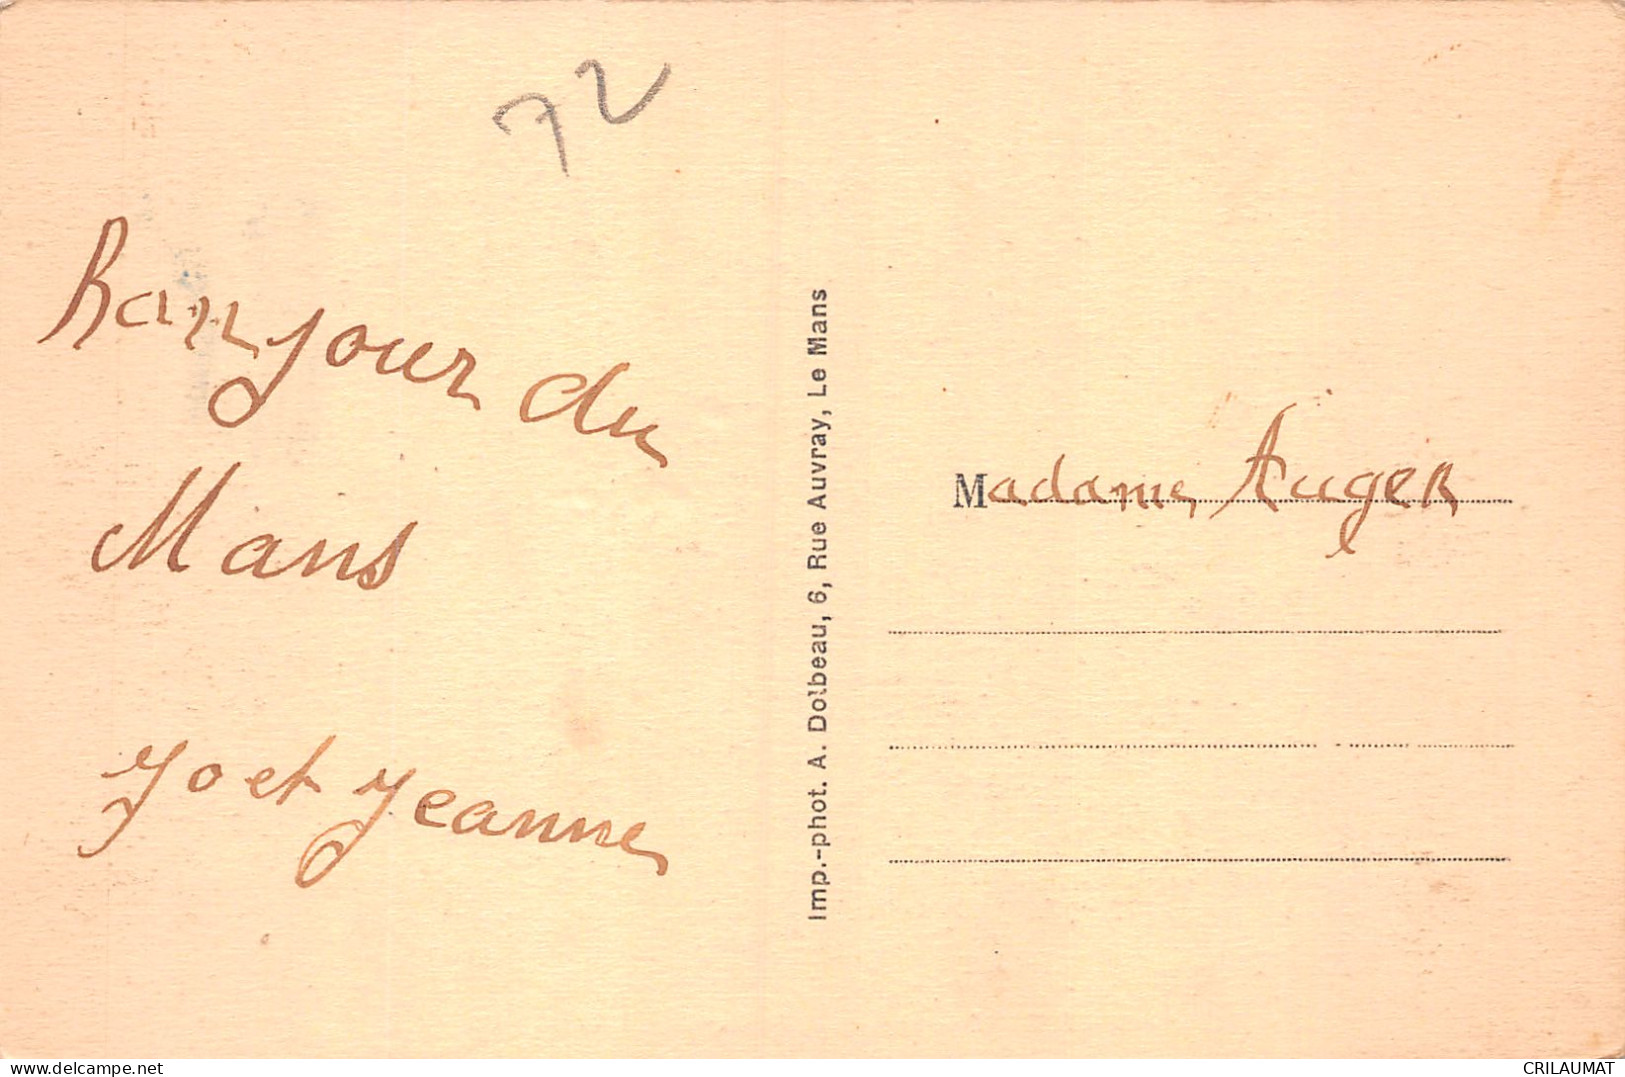 72
Bonjour du
Mans
Jo et Jeanne
Imp.-phot. A. Dolbeau, 6, Rue Auvray, Le Mans
Madame Auger
delcampe.net
CRILAUMAT